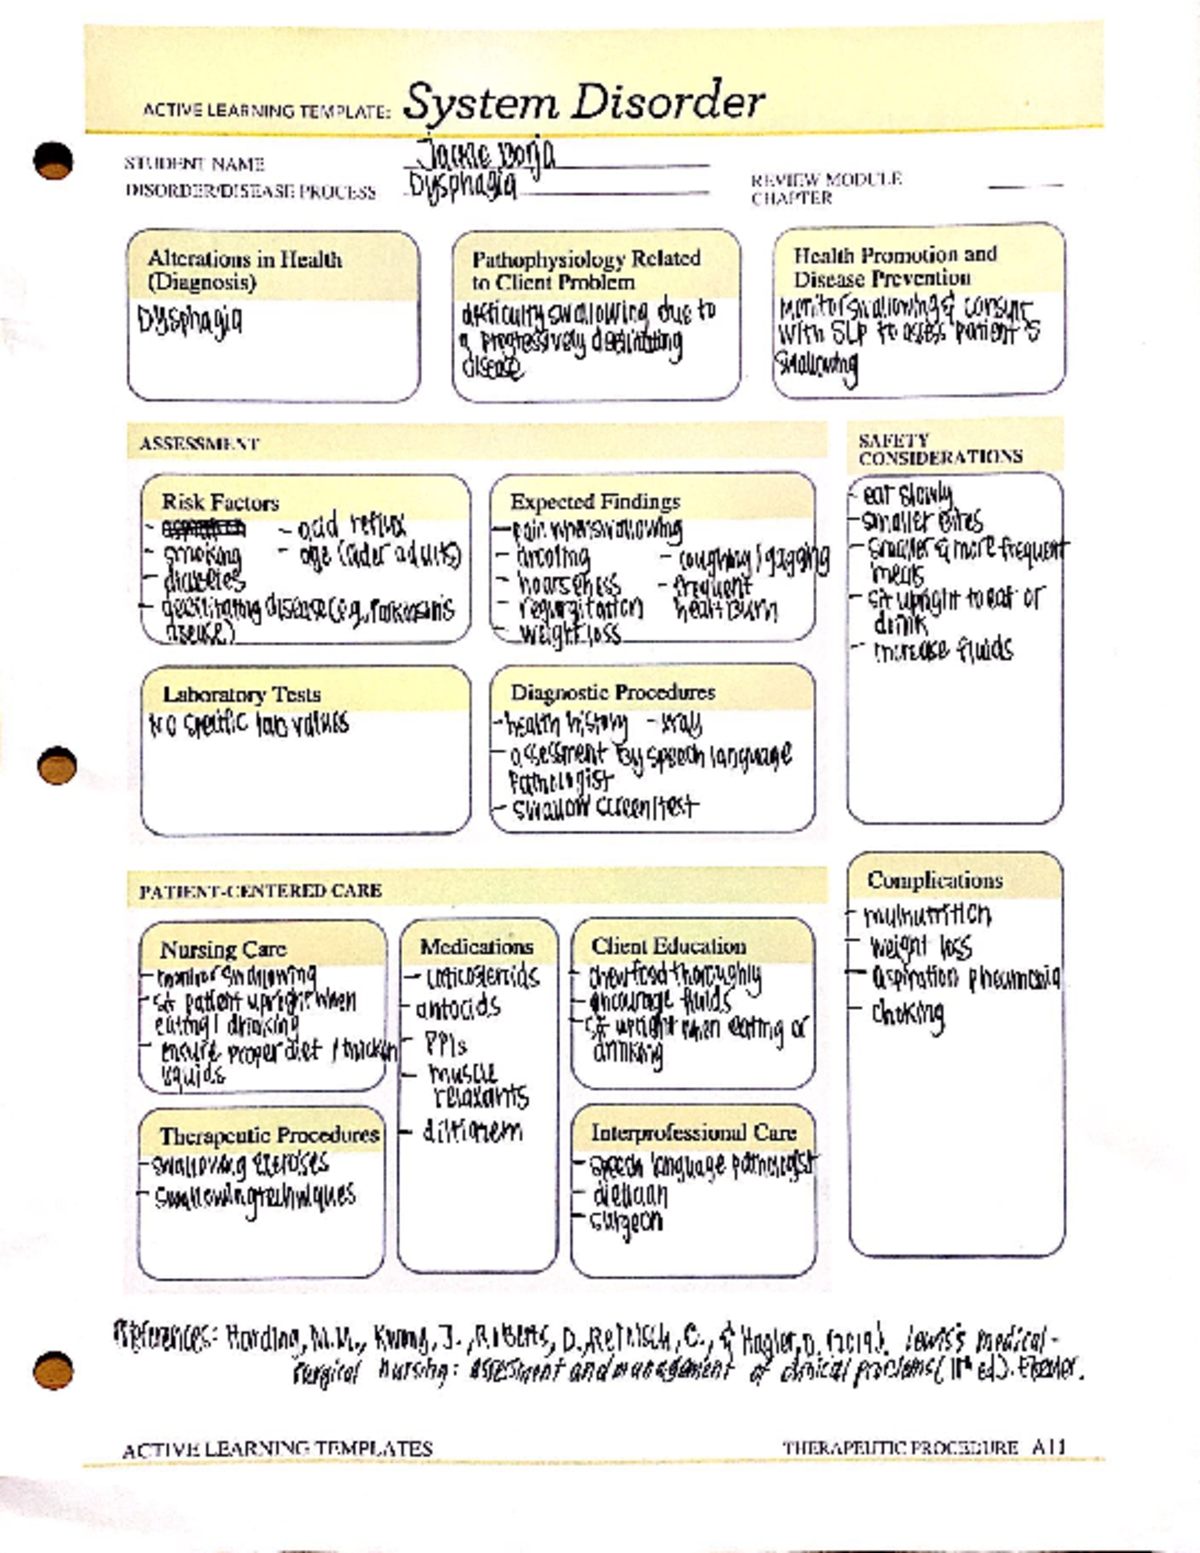 ACTIVE LEARNING TEMPLATE: System Disorder
STUDENT NAME Jackie Borja
DISORDER/DISEASE PROCESS Dysphagia
REVIEW MODULE
CHAPTER
Alterations in Health
(Diagnosis)
Dysphagia
Pathophysiology Related
to Client Problem
difficulty swallowing due to
a progressively debilitating
disease
Health Promotion and
Disease Prevention
Monitor swallowing & consult
with SLP to assess patient's
swallowing
ASSESSMENT
Risk Factors
- smoking
- diabetes
- debilitating disease (e.g., Parkinson's
disease)
- acid reflux
- age (older adults)
Expected Findings
- pain when swallowing
- drooling
- hoarseness
- regurgitation
- weight loss
- coughing / gagging
- frequent
heartburn
SAFETY
CONSIDERATIONS
- eat slowly
- smaller bites
- smaller & more frequent
meals
- sit upright to eat or
drink
- increase fluids
Laboratory Tests
No specific lab values
Diagnostic Procedures
- health history - xray
- assessment by speech language
pathologist
- swallow screen/test
PATIENT-CENTERED CARE
Nursing Care
- monitor swallowing
- sit patient upright when
eating / drinking
- ensure proper diet / thicken
liquids
Medications
- corticosteroids
- antacids
- PPIs
- muscle
relaxants
- diltiazem
Client Education
- chew food thoroughly
- encourage fluids
- sit upright when eating or
drinking
Complications
- malnutrition
- weight loss
- aspiration pneumonia
- choking
Therapeutic Procedures
- swallowing exercises
- swallowing techniques
Interprofessional Care
- speech language pathologist
- dietician
- surgeon
References: Harding, M.M., Kwong, J., Roberts, D., Reinisch, C., & Hagler, D. (2019). Lewis's medical-
surgical nursing: assessment and management of clinical problems (11th ed). Elsevier.
ACTIVE LEARNING TEMPLATES
THERAPEUTIC PROCEDURE A11